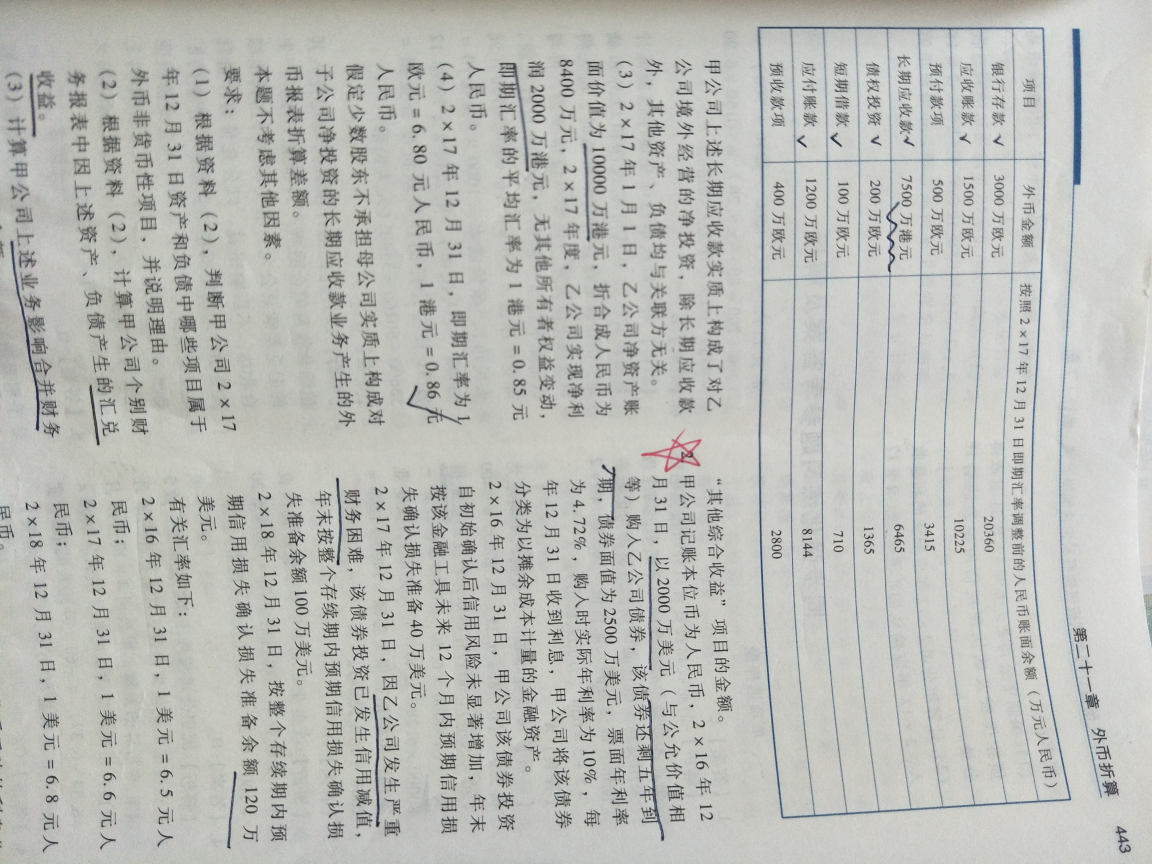 第二十一章 外币折算 443
项目 外币金额 按照2×17年12月31日即期汇率调整前的人民币账面余额（万元人民币）
银行存款 3000万欧元 20360
应收账款 1500万欧元 10225
预付款项 500万欧元 3415
长期应收款 7500万港元 6465
债权投资 200万欧元 1365
短期借款 100万欧元 710
应付账款 1200万欧元 8144
预收款项 400万欧元 2800
甲公司上述长期应收款实质上构成了对乙
公司境外经营的净投资，除长期应收款
外，其他资产、负债均与关联方无关。
（3）2×17年1月1日，乙公司净资产账
面价值为10000万港元，折合成人民币为
8400万元，2×17年度，乙公司实现净利
润2000万港元，无其他所有者权益变动，
即期汇率的平均汇率为1港元=0.85元
人民币。
（4）2×17年12月31日，即期汇率为1
欧元=6.80元人民币，1港元=0.86元
人民币。
假定少数股东不承担母公司实质上构成对
子公司净投资的长期应收款业务产生的外
币报表折算差额。
本题不考虑其他因素。
要求：
（1）根据资料（2），判断甲公司2×17
年12月31日资产和负债中哪些项目属于
外币非货币性项目，并说明理由。
（2）根据资料（2），计算甲公司个别财
务报表中因上述资产、负债产生的汇兑
收益。
（3）计算甲公司上述业务影响合并财务
“其他综合收益”项目的金额。
2. 甲公司记账本位币为人民币，2×16年12
月31日，以2000万美元（与公允价值相
等）购入乙公司债券，该债券还剩五年到
期，债券面值为2500万美元，票面年利率
为4.72%，购入时实际年利率为10%，每
年12月31日收到利息，甲公司将该债券
分类为以摊余成本计量的金融资产。
2×16年12月31日，甲公司该债券投资
自初始确认后信用风险未显著增加，年末
按该金融工具未来12个月内预期信用损
失确认损失准备40万美元。
2×17年12月31日，因乙公司发生严重
财务困难，该债券投资已发生信用减值，
年末按整个存续期内预期信用损失确认损
失准备余额100万美元。
2×18年12月31日，按整个存续期内预
期信用损失确认损失准备余额120万
美元。
有关汇率如下：
2×16年12月31日，1美元=6.5元人
民币；
2×17年12月31日，1美元=6.6元人
民币；
2×18年12月31日，1美元=6.8元人
民币。